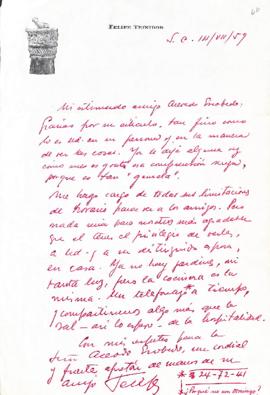 60
FELIPE TEIXIDOR
S. C. III/VIII/59
Mi estimado amigo Acevedo Escobedo:
Gracias por su artículo, tan fino como
lo es Ud. en su persona y en la manera
de ver las cosas. Ya le dejé alguna vez
como me es grata esa
porque es tan "genuina".
Me hago cargo de todas sus limitaciones
de horario para ver a los amigos. Pero
nada sería para nosotros más agradable
que el tener el privilegio de verles,
a Ud. y a su distinguida esposa,
en casa. Ya no hay jardín, ni
tanta luz, pero la cocinera es la
misma. Un telefonazo a tiempo,
y compartiremos algo más que la
sal – así lo espero – de la hospitalidad.
Con mis respetos para la
Sra. Acevedo Escobedo, un cordial
y fuerte apretón de manos de su
amigo
* 24-72-41
¿Por qué no un Domingo?